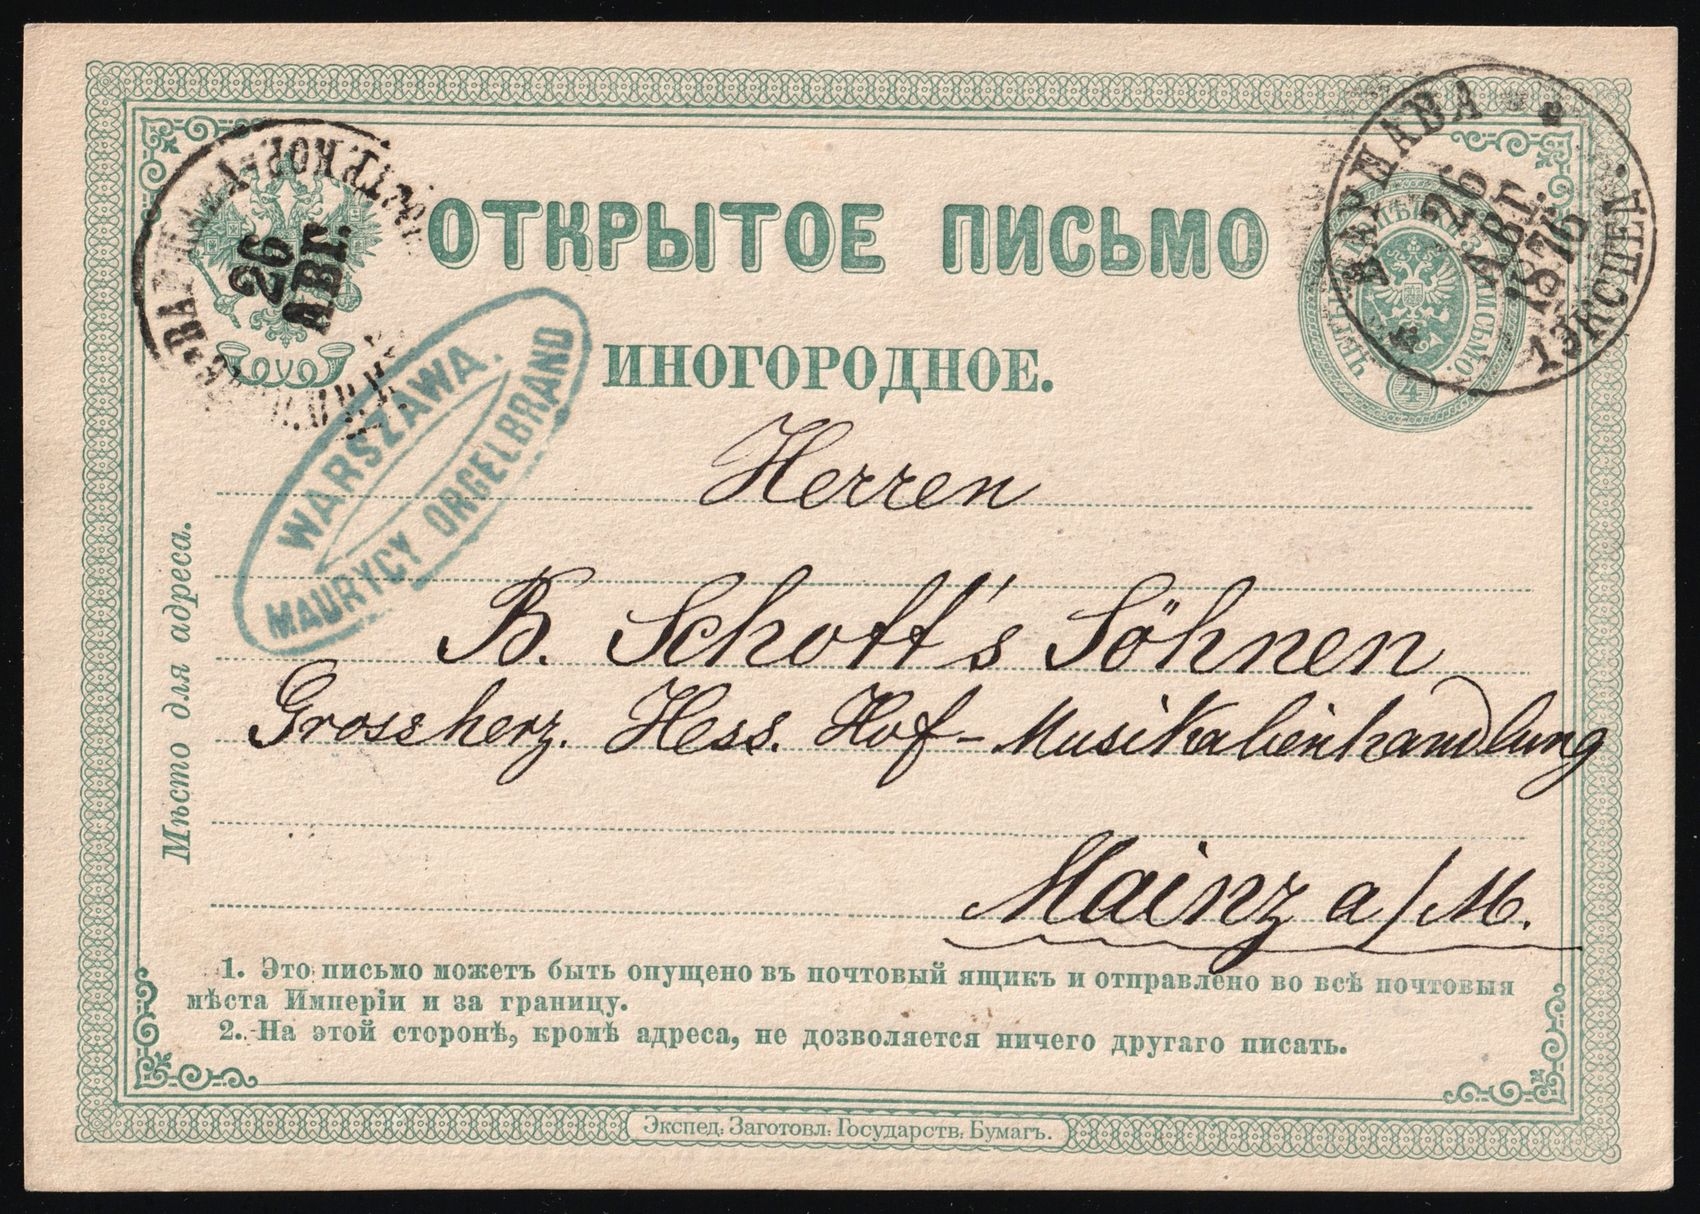 ОТКРЫТОЕ ПИСЬМО
ИНОГОРОДНОЕ.
26
АВГ.
ВАРШАВА
26
АВГ.
1876
1 ЭКСПЕД.
4
WARSZAWA.
MAURYCY ORGELBRAND
Herren
B. Schott's Söhnen
Grossherz. Hess. Hof-Musikalienhandlung
Mainz a/M.
Мѣсто для адреса.
1. Это письмо можетъ быть опущено въ почтовый ящикъ и отправлено во всѣ почтовыя
мѣста Имперіи и за границу.
2. На этой сторонѣ, кромѣ адреса, не дозволяется ничего другаго писать.
Экспед. Заготовл. Государств. Бумагъ.